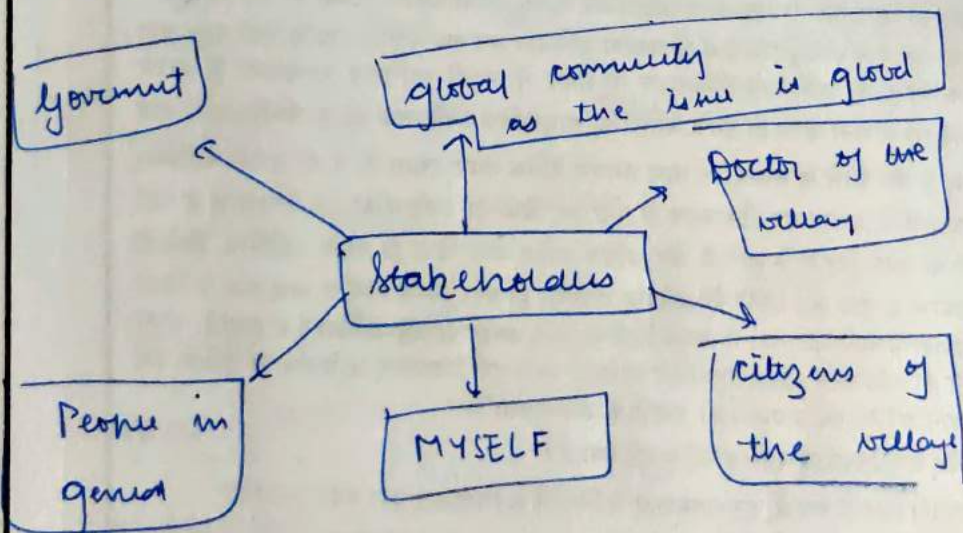 Government
global community
as the issue is global
Doctor of the
village
Stakeholders
People in
general
MYSELF
citizens of
the village